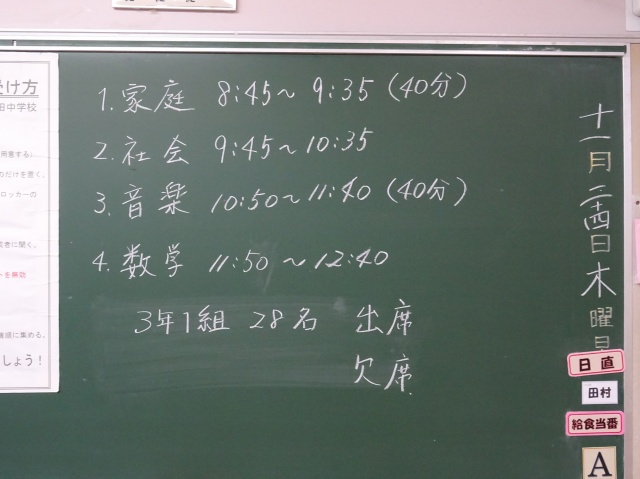 1. 家庭 8:45〜9:35 (40分)
2. 社会 9:45〜10:35
3. 音楽 10:50〜11:40 (40分)
4. 数学 11:50〜12:40
3年1組 28名 出席
欠席
十一月二十四日木曜日
日直
田村
給食当番
A
受け方
田中学校
用意する)
のだけを置く。
ロッカーの
に聞く。
を無効
に集める。
しょう!